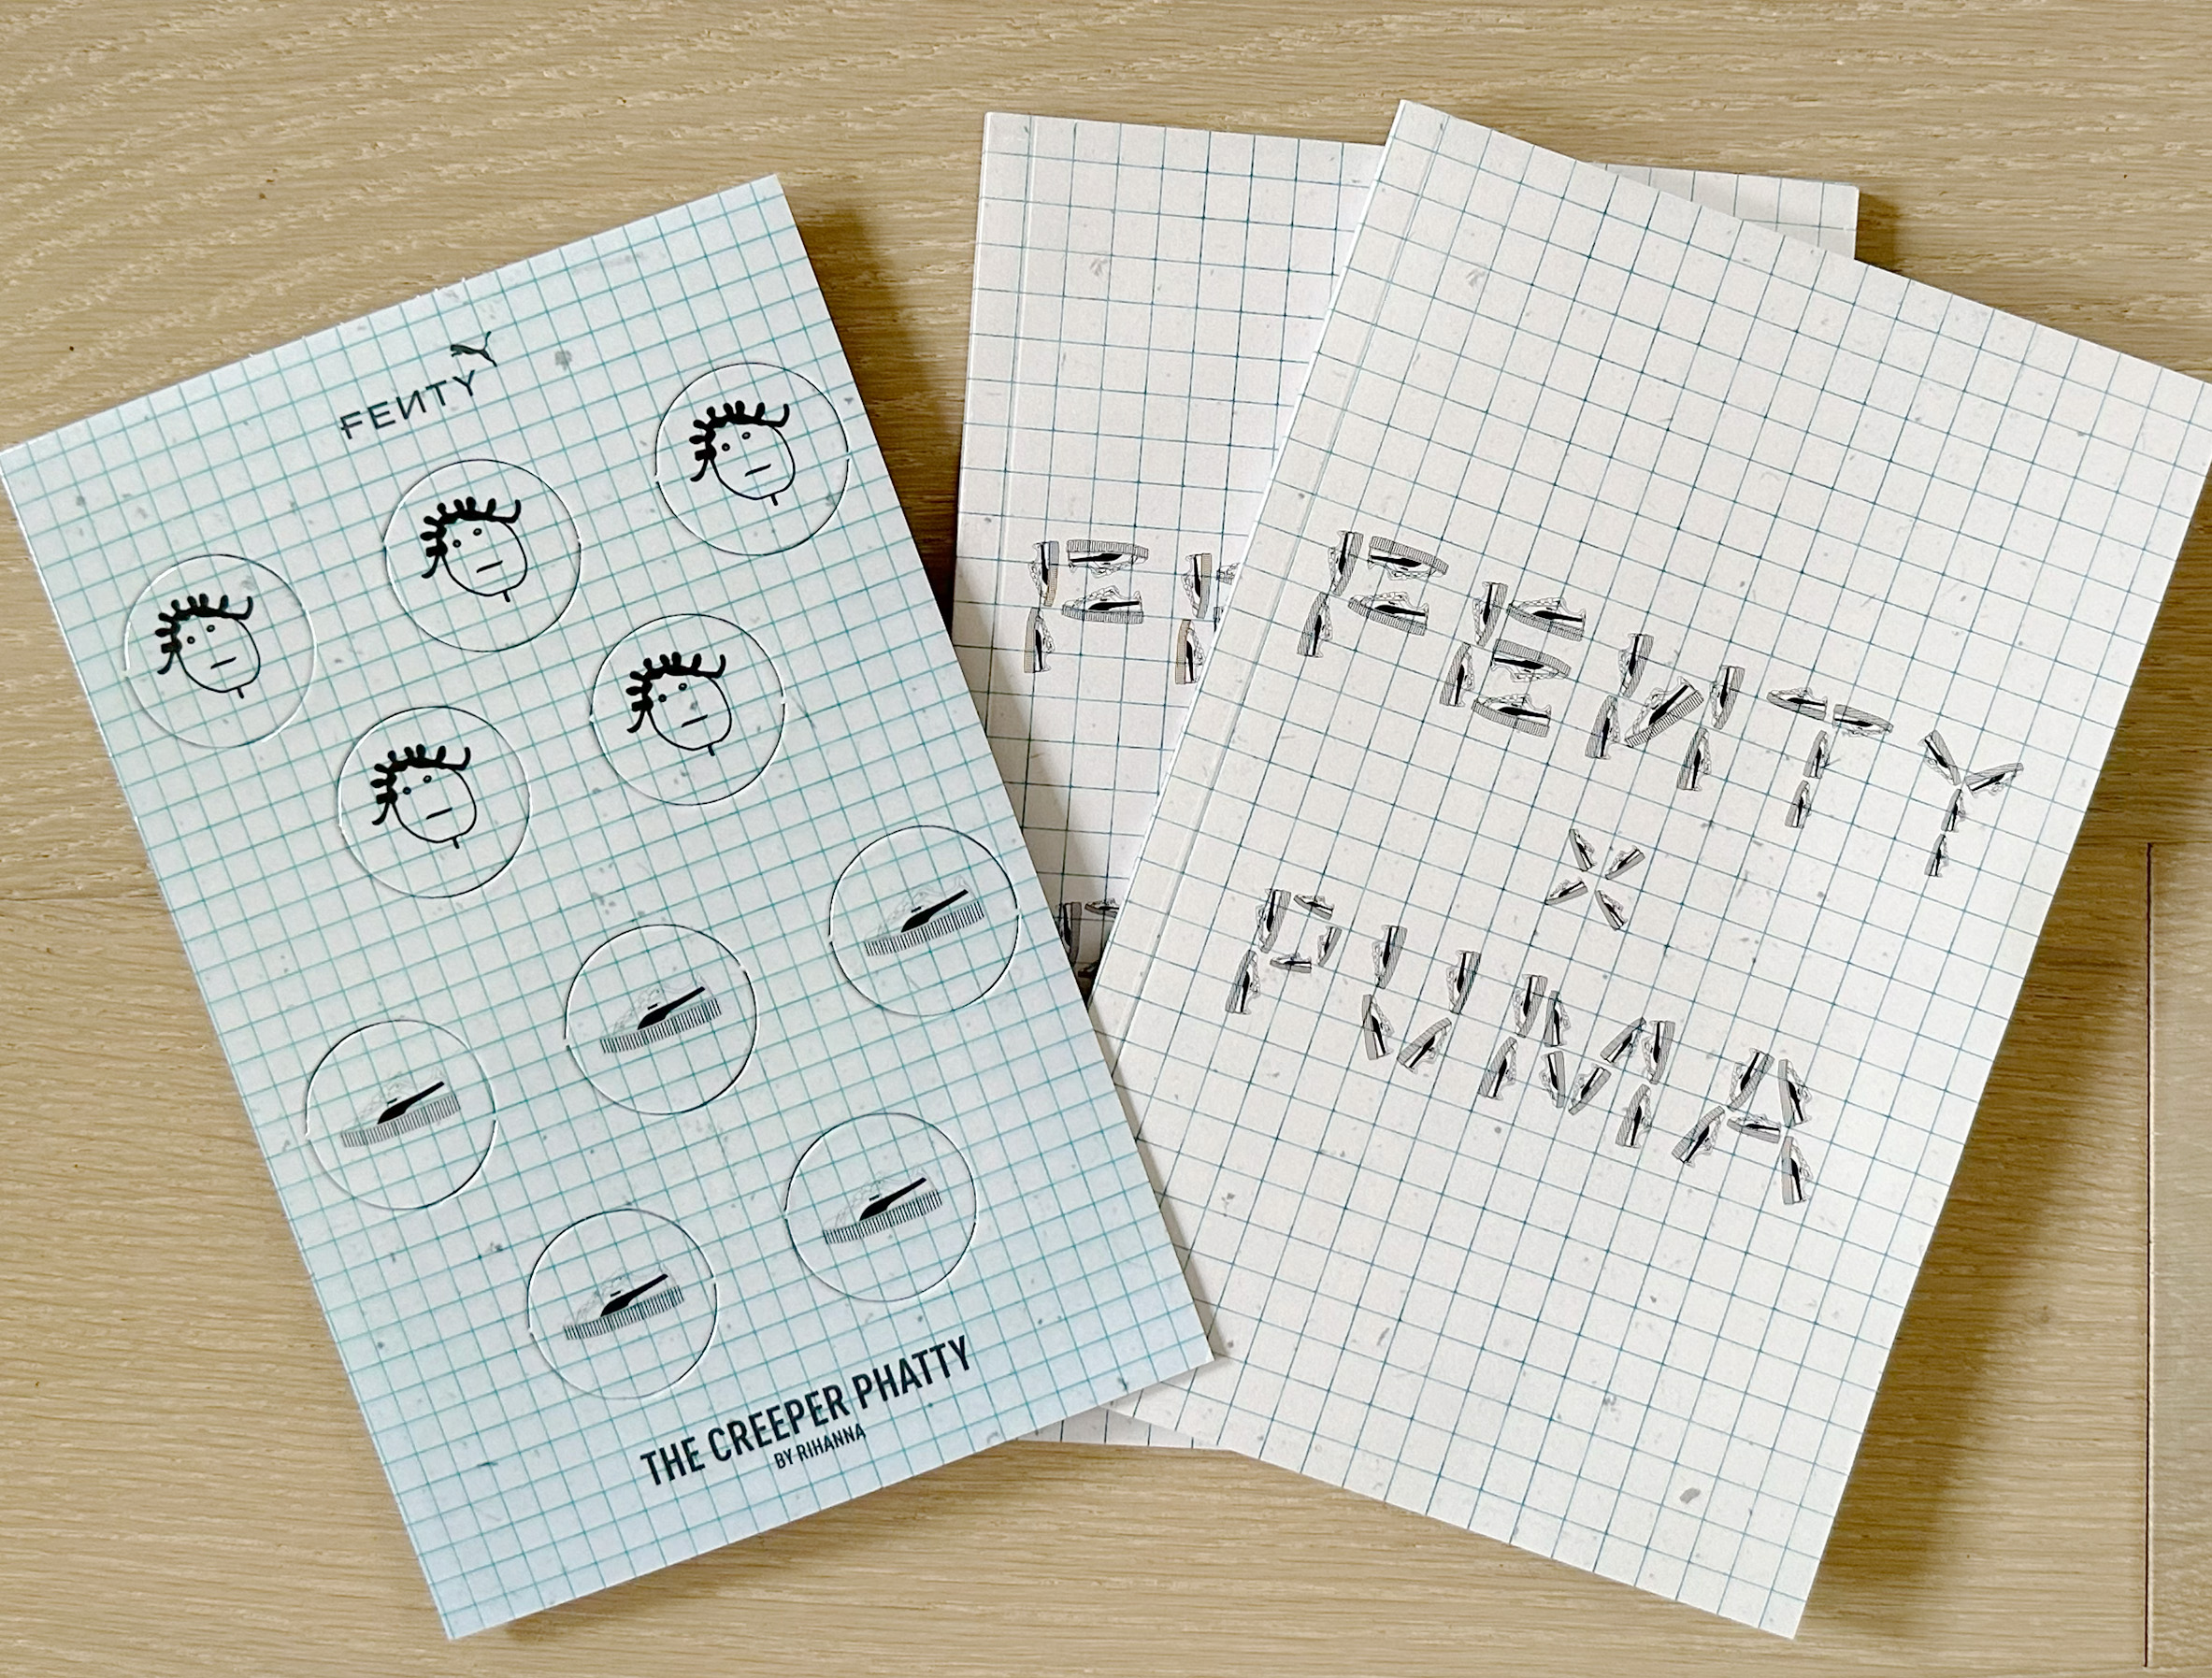 FEИTY
THE CREEPER PHATTY
BY RIHANNA
FEИTY
X
PUMA